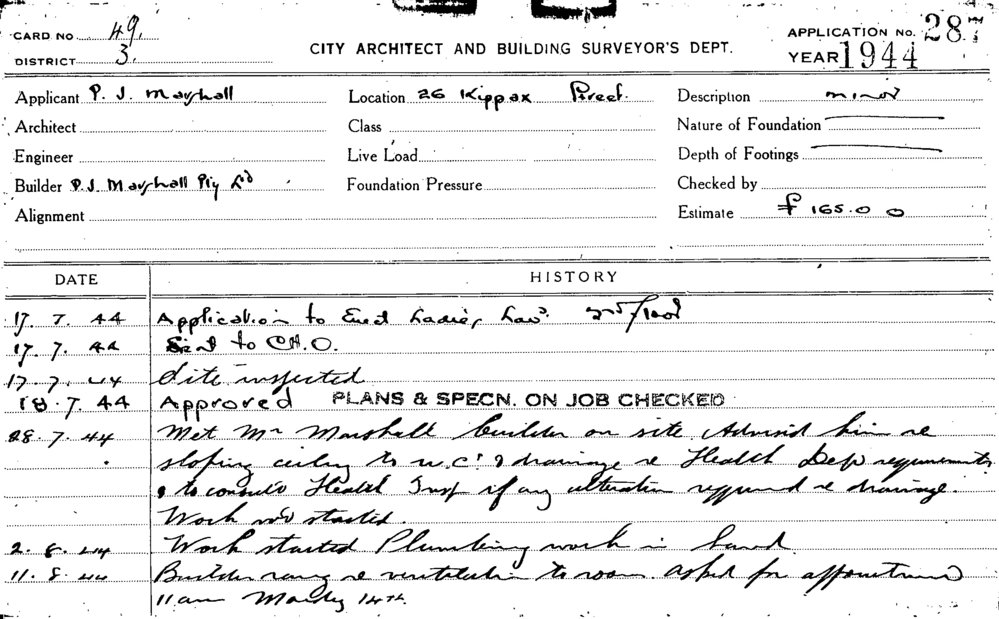 CARD NO. 49.
DISTRICT 3.
CITY ARCHITECT AND BUILDING SURVEYOR'S DEPT.
APPLICATION NO. 287
YEAR 1944
Applicant P. J. Marshall
Location 26 Kippax Street
Description minor
Architect
Class
Nature of Foundation
Engineer
Live Load
Depth of Footings
Builder P.J. Marshall Pty Ltd
Foundation Pressure
Checked by
Alignment
Estimate £ 165.0 0
DATE HISTORY
17. 7. 44 Application to Erect Ladies Lav. 2nd floor
17. 7. 44 Sent to C.H.O.
17. 7. 44 Site inspected
18. 7. 44 Approved PLANS & SPECN. ON JOB CHECKED
28. 7. 44 Met Mr Marshall builder on site. Advised him re
sloping ceiling to w.c's & drainage re Health Dep requirements
& to consult Health Insp if any alteration required re drainage.
Work not started.
2. 8. 44 Work started Plumbing work in hand.
11. 8. 44 Builder rang re ventilation to room. asked for appointment
11am Monday 14th.